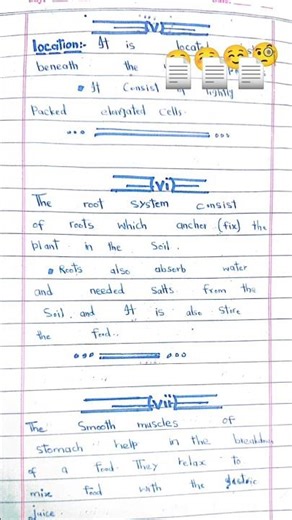 (v)
location:- It is located
beneath the
It Consist of tightly
Packed elongated cells.
(vi)
The root System Consist
of roots which ancher (fix) the
plant in the Soil.
Roots also absorb water
and needed Salts from the
Soil. and It is also Store
the food..
(vii)
The Smooth muscles of
stomach help in the breakdown
of a food. They relax to
mix food with the gastric
juice.